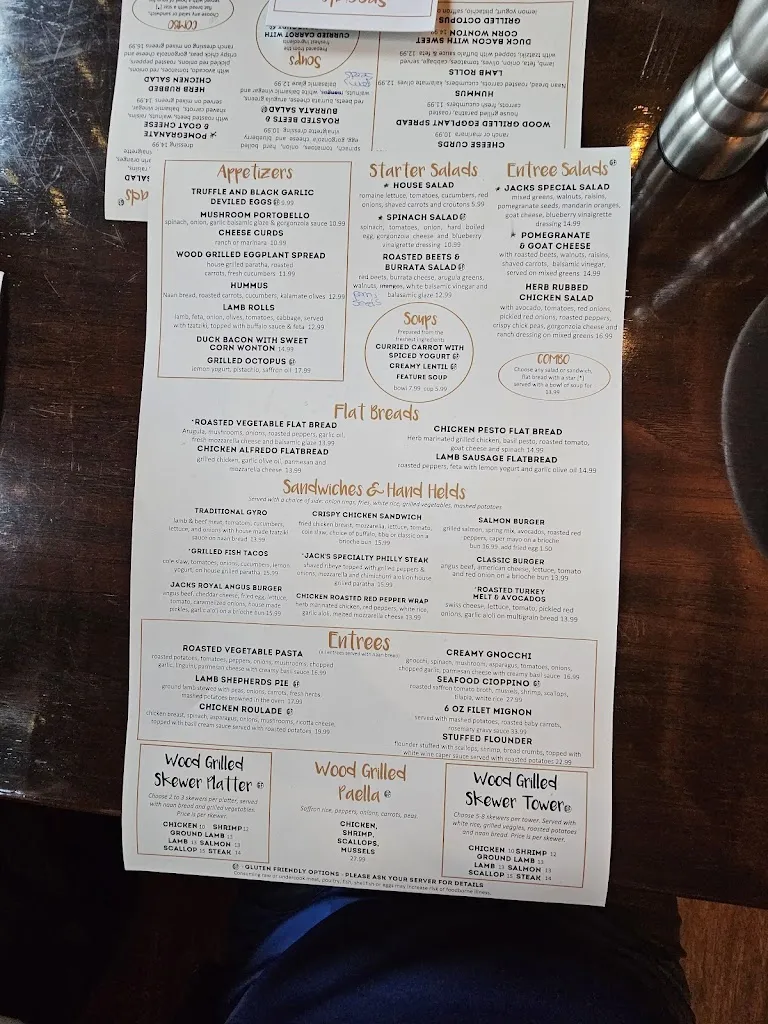 Appetizers
TRUFFLE AND BLACK GARLIC
DEVILED EGGS 9.99
MUSHROOM PORTOBELLO
spinach, onion, garlic balsamic glaze & gorgonzola sauce 10.99
CHEESE CURDS
ranch or marinara 10.99
WOOD GRILLED EGGPLANT SPREAD
house grilled paratha, roasted
carrots, fresh cucumbers 11.99
HUMMUS
Naan bread, roasted carrots, cucumbers, kalamate olives 12.99
LAMB ROLLS
lamb, feta, onion, olives, tomatoes, cabbage, served
with tzatziki, topped with buffalo sauce & feta 12.99
DUCK BACON WITH SWEET
CORN WONTON 14.99
GRILLED OCTOPUS
lemon yogurt, pistachio, saffron oil 17.99
Starter Salads
★ HOUSE SALAD
romaine lettuce, tomatoes, cucumbers, red
onions, shaved carrots and croutons 5.99
★ SPINACH SALAD
spinach, tomatoes, onion, hard boiled
egg, gorgonzola cheese and blueberry
vinaigrette dressing 10.99
ROASTED BEETS &
BURRATA SALAD
red beets, burrata cheese, arugula greens,
walnuts, mangos, white balsamic vinegar and
balasamic glaze 12.99
Soups
Prepared from the
freshest ingredients
CURRIED CARROT WITH
SPICED YOGURT
CREAMY LENTIL
FEATURE SOUP
bowl 7.99 cup 5.99
Entree Salads
★ JACKS SPECIAL SALAD
mixed greens, walnuts, raisins,
pomegranate seeds, mandarin oranges,
goat cheese, blueberry vinaigrette
dressing 14.99
★ POMEGRANATE
& GOAT CHEESE
with roasted beets, walnuts, raisins,
shaved carrots, balsamic vinegar,
served on mixed greens 14.99
HERB RUBBED
CHICKEN SALAD
with avocado, tomatoes, red onions,
pickled red onions, roasted peppers,
crispy chick peas, gorgonzola cheese and
ranch dressing on mixed greens 16.99
COMBO
Choose any salad or sandwich,
flat bread with a star (*)
served with a bowl of soup for
Flat Breads
*ROASTED VEGETABLE FLAT BREAD
Arugula, mushrooms, onions, roasted peppers, garlic oil,
fresh mozzarella cheese and balsamic glaze 13.99
CHICKEN ALFREDO FLATBREAD
grilled chicken, garlic olive oil, parmesan and
mozzarella cheese 13.99
CHICKEN PESTO FLAT BREAD
Herb marinated grilled chicken, basil pesto, roasted tomato,
goat cheese and spinach 14.99
LAMB SAUSAGE FLATBREAD
roasted peppers, feta with lemon yogurt and garlic olive oil 14.99
Sandwiches & Hand Helds
Served with a choice of side: onion rings, fries, white rice, grilled vegetables, mashed potatoes
TRADITIONAL GYRO
lamb & beef meat, tomatoes, cucumbers,
lettuce, and onions with house made tzatziki
sauce on naan bread 13.99
*GRILLED FISH TACOS
cole slaw, tomatoes, onions, cucumbers, lemon
yogurt, on house grilled paratha 15.99
JACKS ROYAL ANGUS BURGER
angus beef, cheddar cheese, fried egg, lettuce,
tomato, caramelized onions, house made
pickles, garlic aioli on a brioche bun 15.99
CRISPY CHICKEN SANDWICH
fried chicken breast, mozzarella, lettuce, tomato,
cole slaw, choice of buffalo, bbq or classic on a
brioche bun 15.99
*JACK'S SPECIALTY PHILLY STEAK
shaved ribeye topped with grilled peppers &
onions, mozzarella and chimichurri aioli on house
grilled paratha 15.99
CHICKEN ROASTED RED PEPPER WRAP
herb marinated chicken, red peppers, white rice,
garlic aioli, melted mozzarella cheese 13.99
SALMON BURGER
grilled salmon, spring mix, avocados, roasted red
peppers, caper mayo on a brioche
bun 16.99 add fried egg 1.50
CLASSIC BURGER
angus beef, american cheese, lettuce, tomato
and red onion on a brioche bun 13.99
*ROASTED TURKEY
MELT & AVOCADOS
swiss cheese, lettuce, tomato, pickled red
onions, garlic aioli on multigrain bread 13.99
Entrees
ROASTED VEGETABLE PASTA
roasted potatoes, tomatoes, peppers, onions, mushrooms, chopped
garlic, linguini, parmesan cheese with creamy basil sauce 16.99
LAMB SHEPHERDS PIE
ground lamb stewed with peas, onions, carrots, fresh herbs,
mashed potatoes browned in the oven 17.99
CHICKEN ROULADE
chicken breast, spinach, asparagus, onions, mushrooms, ricotta cheese,
topped with basil cream sauce served with roasted potatoes 19.99
CREAMY GNOCCHI
gnocchi, spinach, mushroom, asparagus, tomatoes, onions,
chopped garlic, parmesan cheese with creamy basil sauce 16.99
SEAFOOD CIOPPINO
roasted saffron tomato broth, mussels, shrimp, scallops,
tilapia, white rice 27.99
6 OZ FILET MIGNON
served with mashed potatoes, roasted baby carrots,
rosemary gravy sauce 33.99
STUFFED FLOUNDER
flounder stuffed with scallops, shrimp, bread crumbs, topped with
white wine caper sauce served with roasted potatoes 22.99
Wood Grilled
Skewer Platter
Choose 2 to 3 skewers per platter, served
with naan bread and grilled vegetables.
Price is per skewer.
CHICKEN 10 SHRIMP 12
GROUND LAMB 13
LAMB 13 SALMON 13
SCALLOP 15 STEAK 14
Wood Grilled
Paella
Saffron rice, peppers, onions, carrots, peas.
CHICKEN,
SHRIMP,
SCALLOPS,
MUSSELS
27.99
Wood Grilled
Skewer Tower
Choose 5-8 skewers per tower. Served with
white rice, grilled veggies, roasted potatoes
and naan bread. Price is per skewer.
CHICKEN 10 SHRIMP 12
GROUND LAMB 13
LAMB 13 SALMON 13
SCALLOP 15 STEAK 14
GLUTEN FRIENDLY OPTIONS - PLEASE ASK YOUR SERVER FOR DETAILS
Consuming raw or undercook meat, poultry, fish, shellfish or eggs may increase risk of foodborne illness.